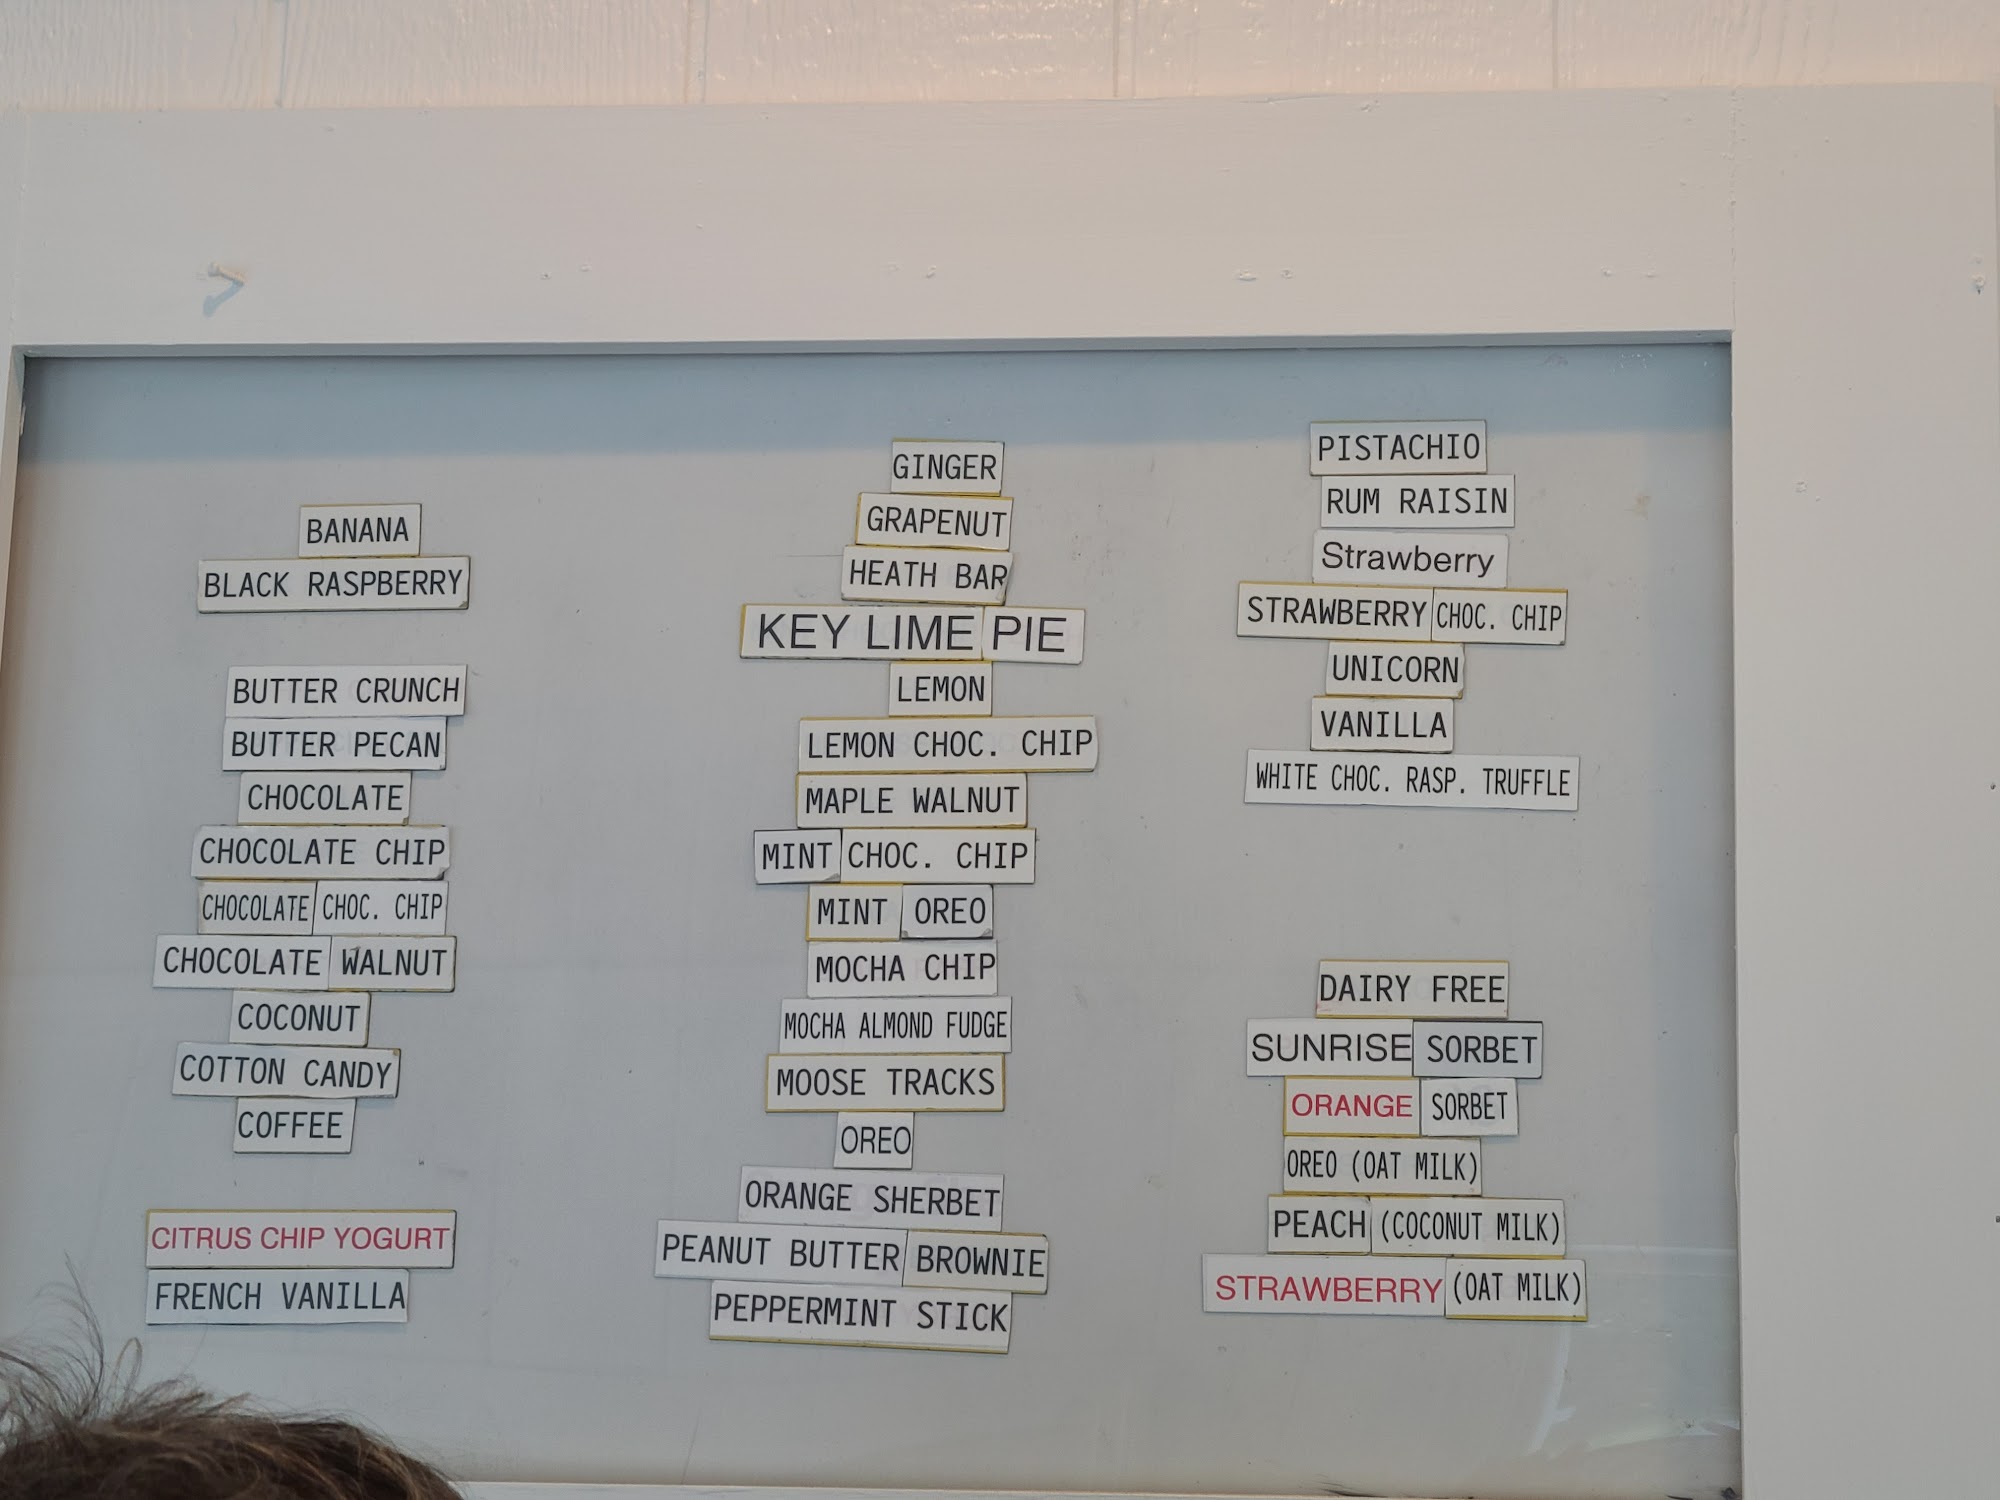 BANANA
BLACK RASPBERRY
BUTTER CRUNCH
BUTTER PECAN
CHOCOLATE
CHOCOLATE CHIP
CHOCOLATE CHOC. CHIP
CHOCOLATE WALNUT
COCONUT
COTTON CANDY
COFFEE
CITRUS CHIP YOGURT
FRENCH VANILLA
GINGER
GRAPENUT
HEATH BAR
KEY LIME PIE
LEMON
LEMON CHOC. CHIP
MAPLE WALNUT
MINT CHOC. CHIP
MINT OREO
MOCHA CHIP
MOCHA ALMOND FUDGE
MOOSE TRACKS
OREO
ORANGE SHERBET
PEANUT BUTTER BROWNIE
PEPPERMINT STICK
PISTACHIO
RUM RAISIN
Strawberry
STRAWBERRY CHOC. CHIP
UNICORN
VANILLA
WHITE CHOC. RASP. TRUFFLE
DAIRY FREE
SUNRISE SORBET
ORANGE SORBET
OREO (OAT MILK)
PEACH (COCONUT MILK)
STRAWBERRY (OAT MILK)